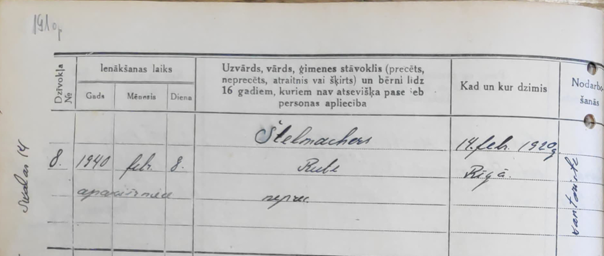 Dzīvokļa № Ienākšanas laiks Gads Mēnesis Diena
Uzvārds, vārds, ģimenes stāvoklis (precēts,
neprecēts, atraitnis vai šķirts) un bērni līdz
16 gadiem, kuriem nav atsevišķa pase jeb
personas apliecība
Kad un kur dzimis
Nodarbo-
šanās
Stelmachers 14. febr. 1920g
8. 1940 febr. 8. Rube Rīgā.
neprec.